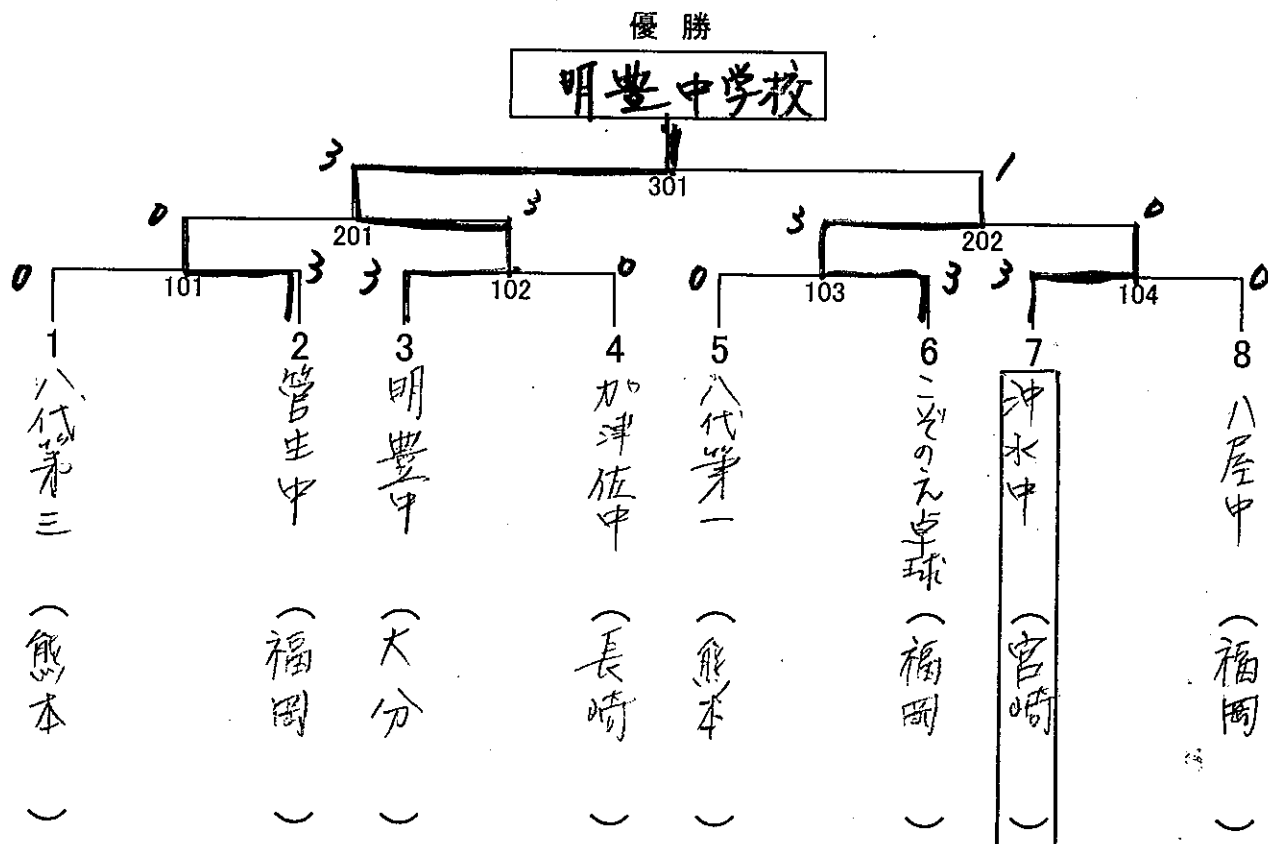 優勝
明豊中学校
3
301
1
0
201
3
3
202
0
0
101
3
3
102
0
0
103
3
3
104
0
1
2
3
4
5
6
7
8
八代第三
(熊本)
菅生中
(福岡)
明豊中
(大分)
加津佐中
(長崎)
八代第一
(熊本)
こぞのえ卓球
(福岡)
沖水中
(宮崎)
八屋中
(福岡)